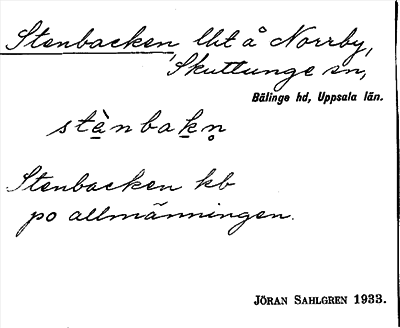 Stenbacken, lht å Norrby,
Skuttunge sn,
Bälinge hd, Uppsala län.
stànbakn̥
Stenbacken kb
po allmänningen.
JÖRAN SAHLGREN 1933.